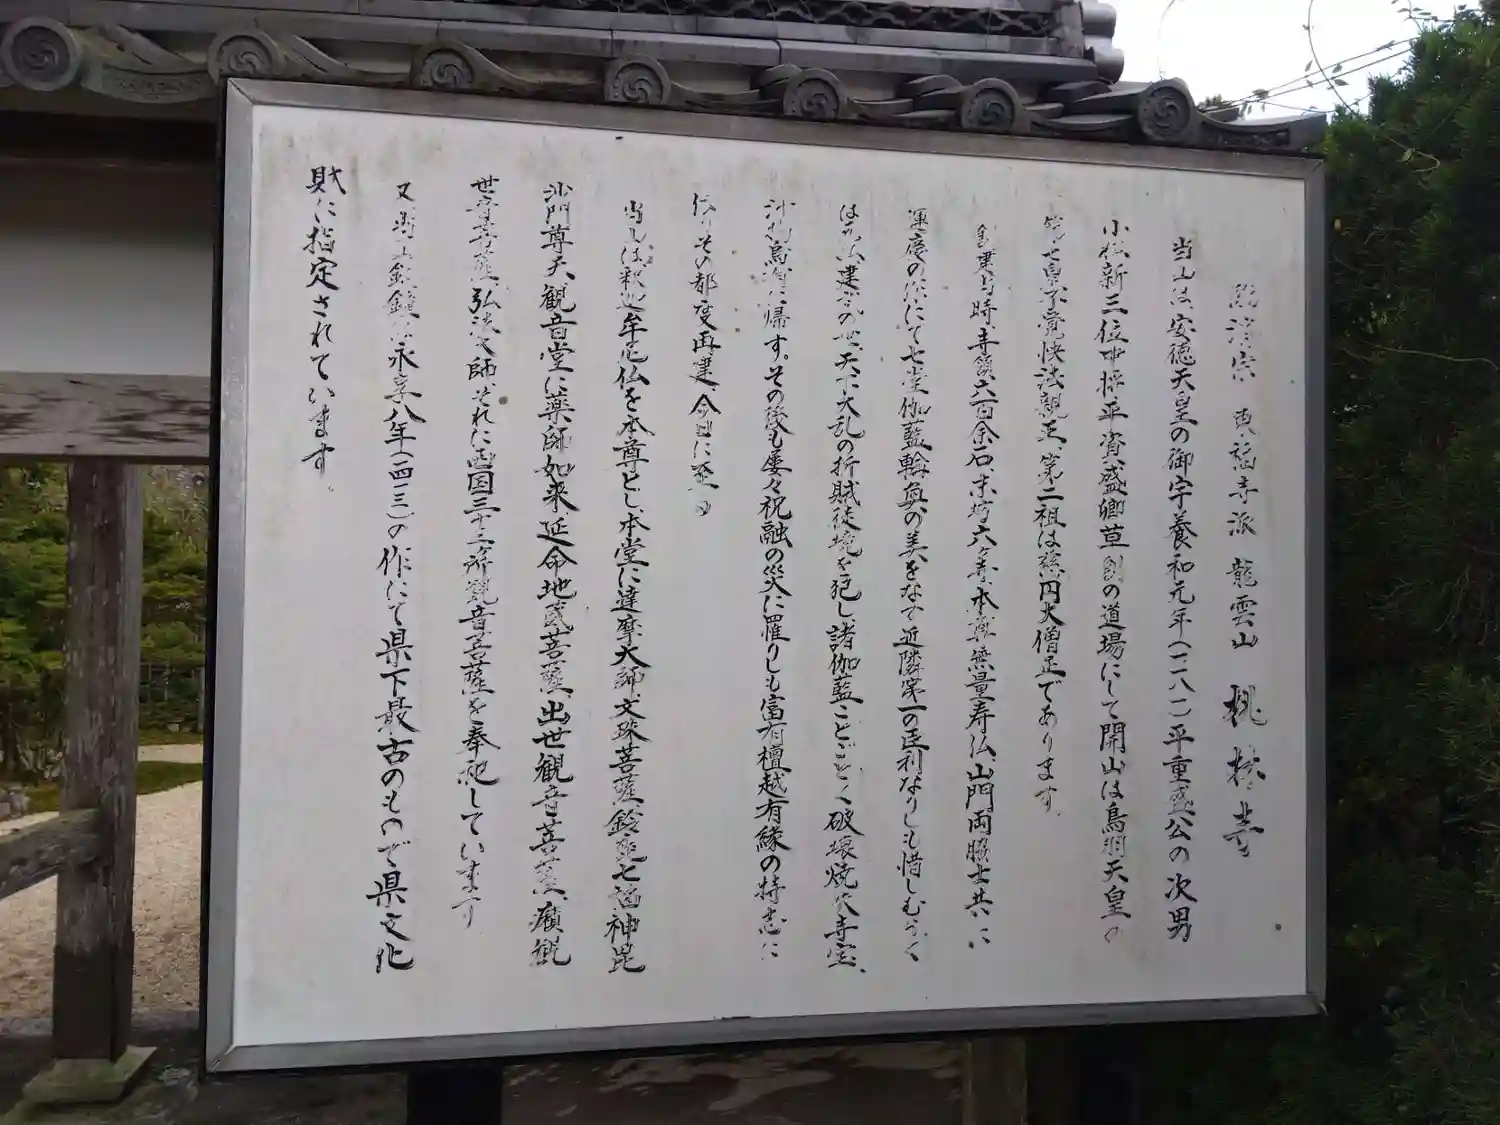 臨済宗 東福寺派 龍雲山 桃林寺
当山は安徳天皇の御宇養和元年(一一八一)平重盛公の次男
小松新三位中将平資盛卿草創の道場にして開山は鳥羽天皇の
第七皇子覚快法親王、第二祖は慈円大僧正であります。
創建当時、寺領六百余石、末坊六ヶ寺、本尊無量寿仏、山門両脇士共に
運慶の作にて七堂伽藍輪奐の美をなす近隣第一の巨刹なりしも惜しむらく
は元弘建武の世、天下大乱の折賊徒境を犯し、諸伽藍ことごとく破壊焼失寺宝、
沙門烏有に帰す。その後も屡々祝融の災に罹りしも富有檀越有縁の特志に
依りその都度再建、今日に至る
当山は釈迦牟尼仏を本尊とし、本堂に達摩大師、文珠菩薩、鈴鹿七福神毘
沙門尊天、観音堂に薬師如来、延命地蔵菩薩、出世観音菩薩、癪観
世音菩薩、弘法大師、それに西国三十三所観音菩薩を奉祀しています
又当山釣鐘は永享八年(一四三一)の作にて県下最古のもので県文化
財に指定されています。